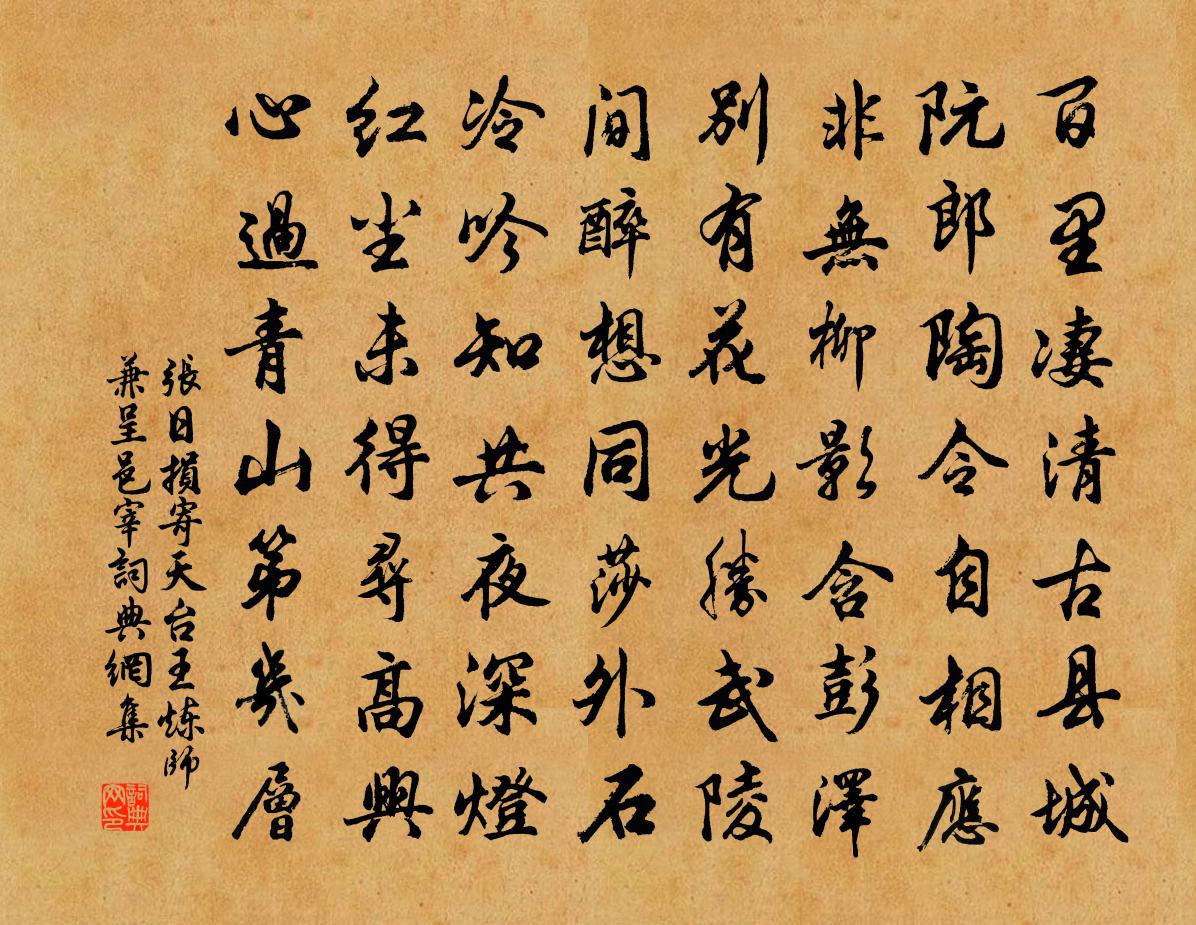 百里凄清古县城
阮郎陶令自相應
非無柳影含彭澤
別有花光勝武陵
间醉想同莎外石
冷吟知共夜深燈
红尘未得尋高興
心過青山第幾層
張日損寄天台王炼師
兼呈邑宰詞典網集
詞典
网印